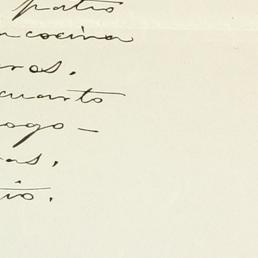 patio
cocina
ros.
cuarto
ogo-
as,
io.